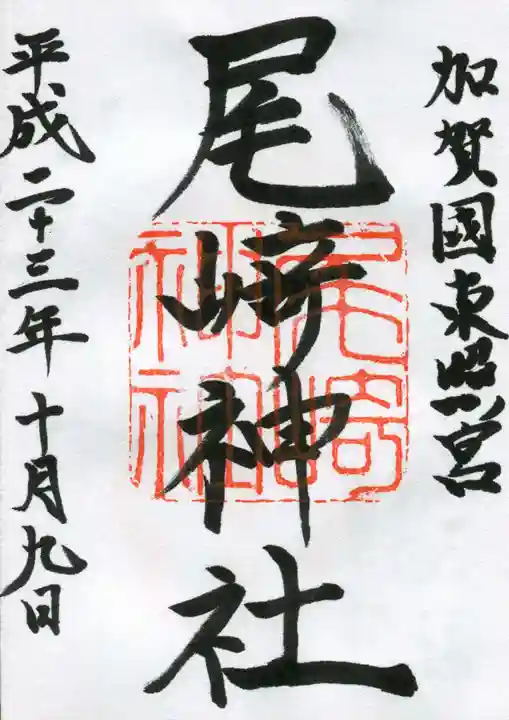 加賀國東照宮
尾﨑神社
尾崎
神社
平成二十三年十月九日